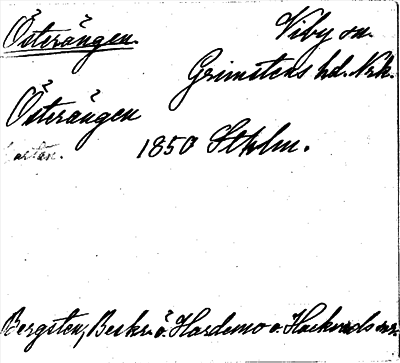 Österängen. Viby sn.
Grimstens hd. Nrk.
Österängen
1850 Sthlm.
Bergsten, Beskr. ö. Hardemo o. Hackvads snr.